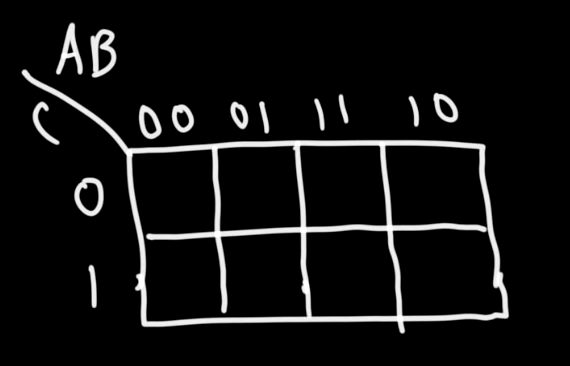 AB
C
00 01 11 10
0
1